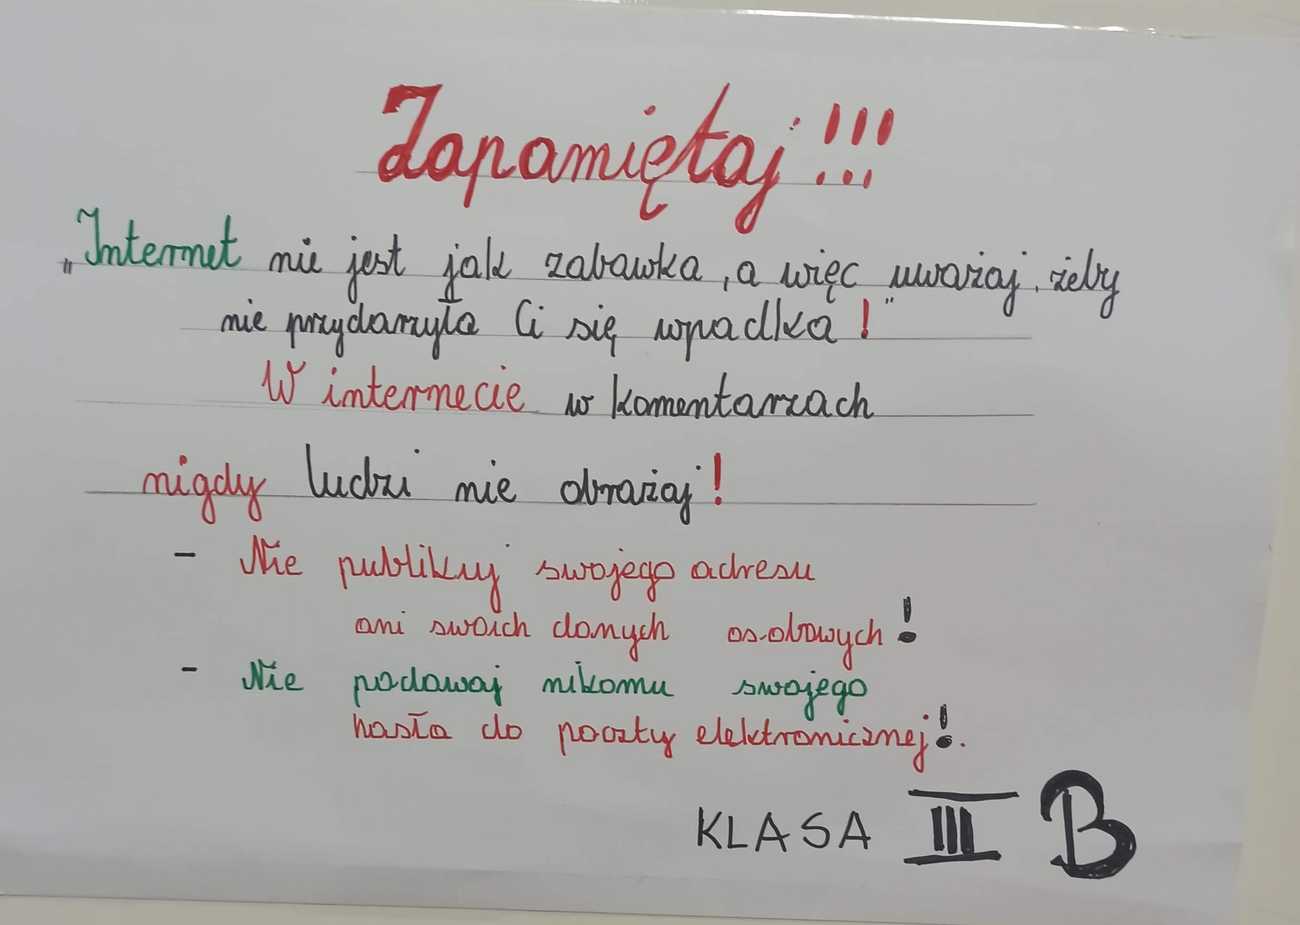 Zapamiętaj!!!
„Internet nie jest jak zabawka, a więc uważaj, żeby
nie przydarzyła Ci się wpadka!"
W internecie w komentarzach
nigdy ludzi nie obrażaj!
- Nie publikuj swojego adresu
ani swoich danych osobowych!
- Nie podawaj nikomu swojego
hasła do poczty elektronicznej!.
KLASA III B